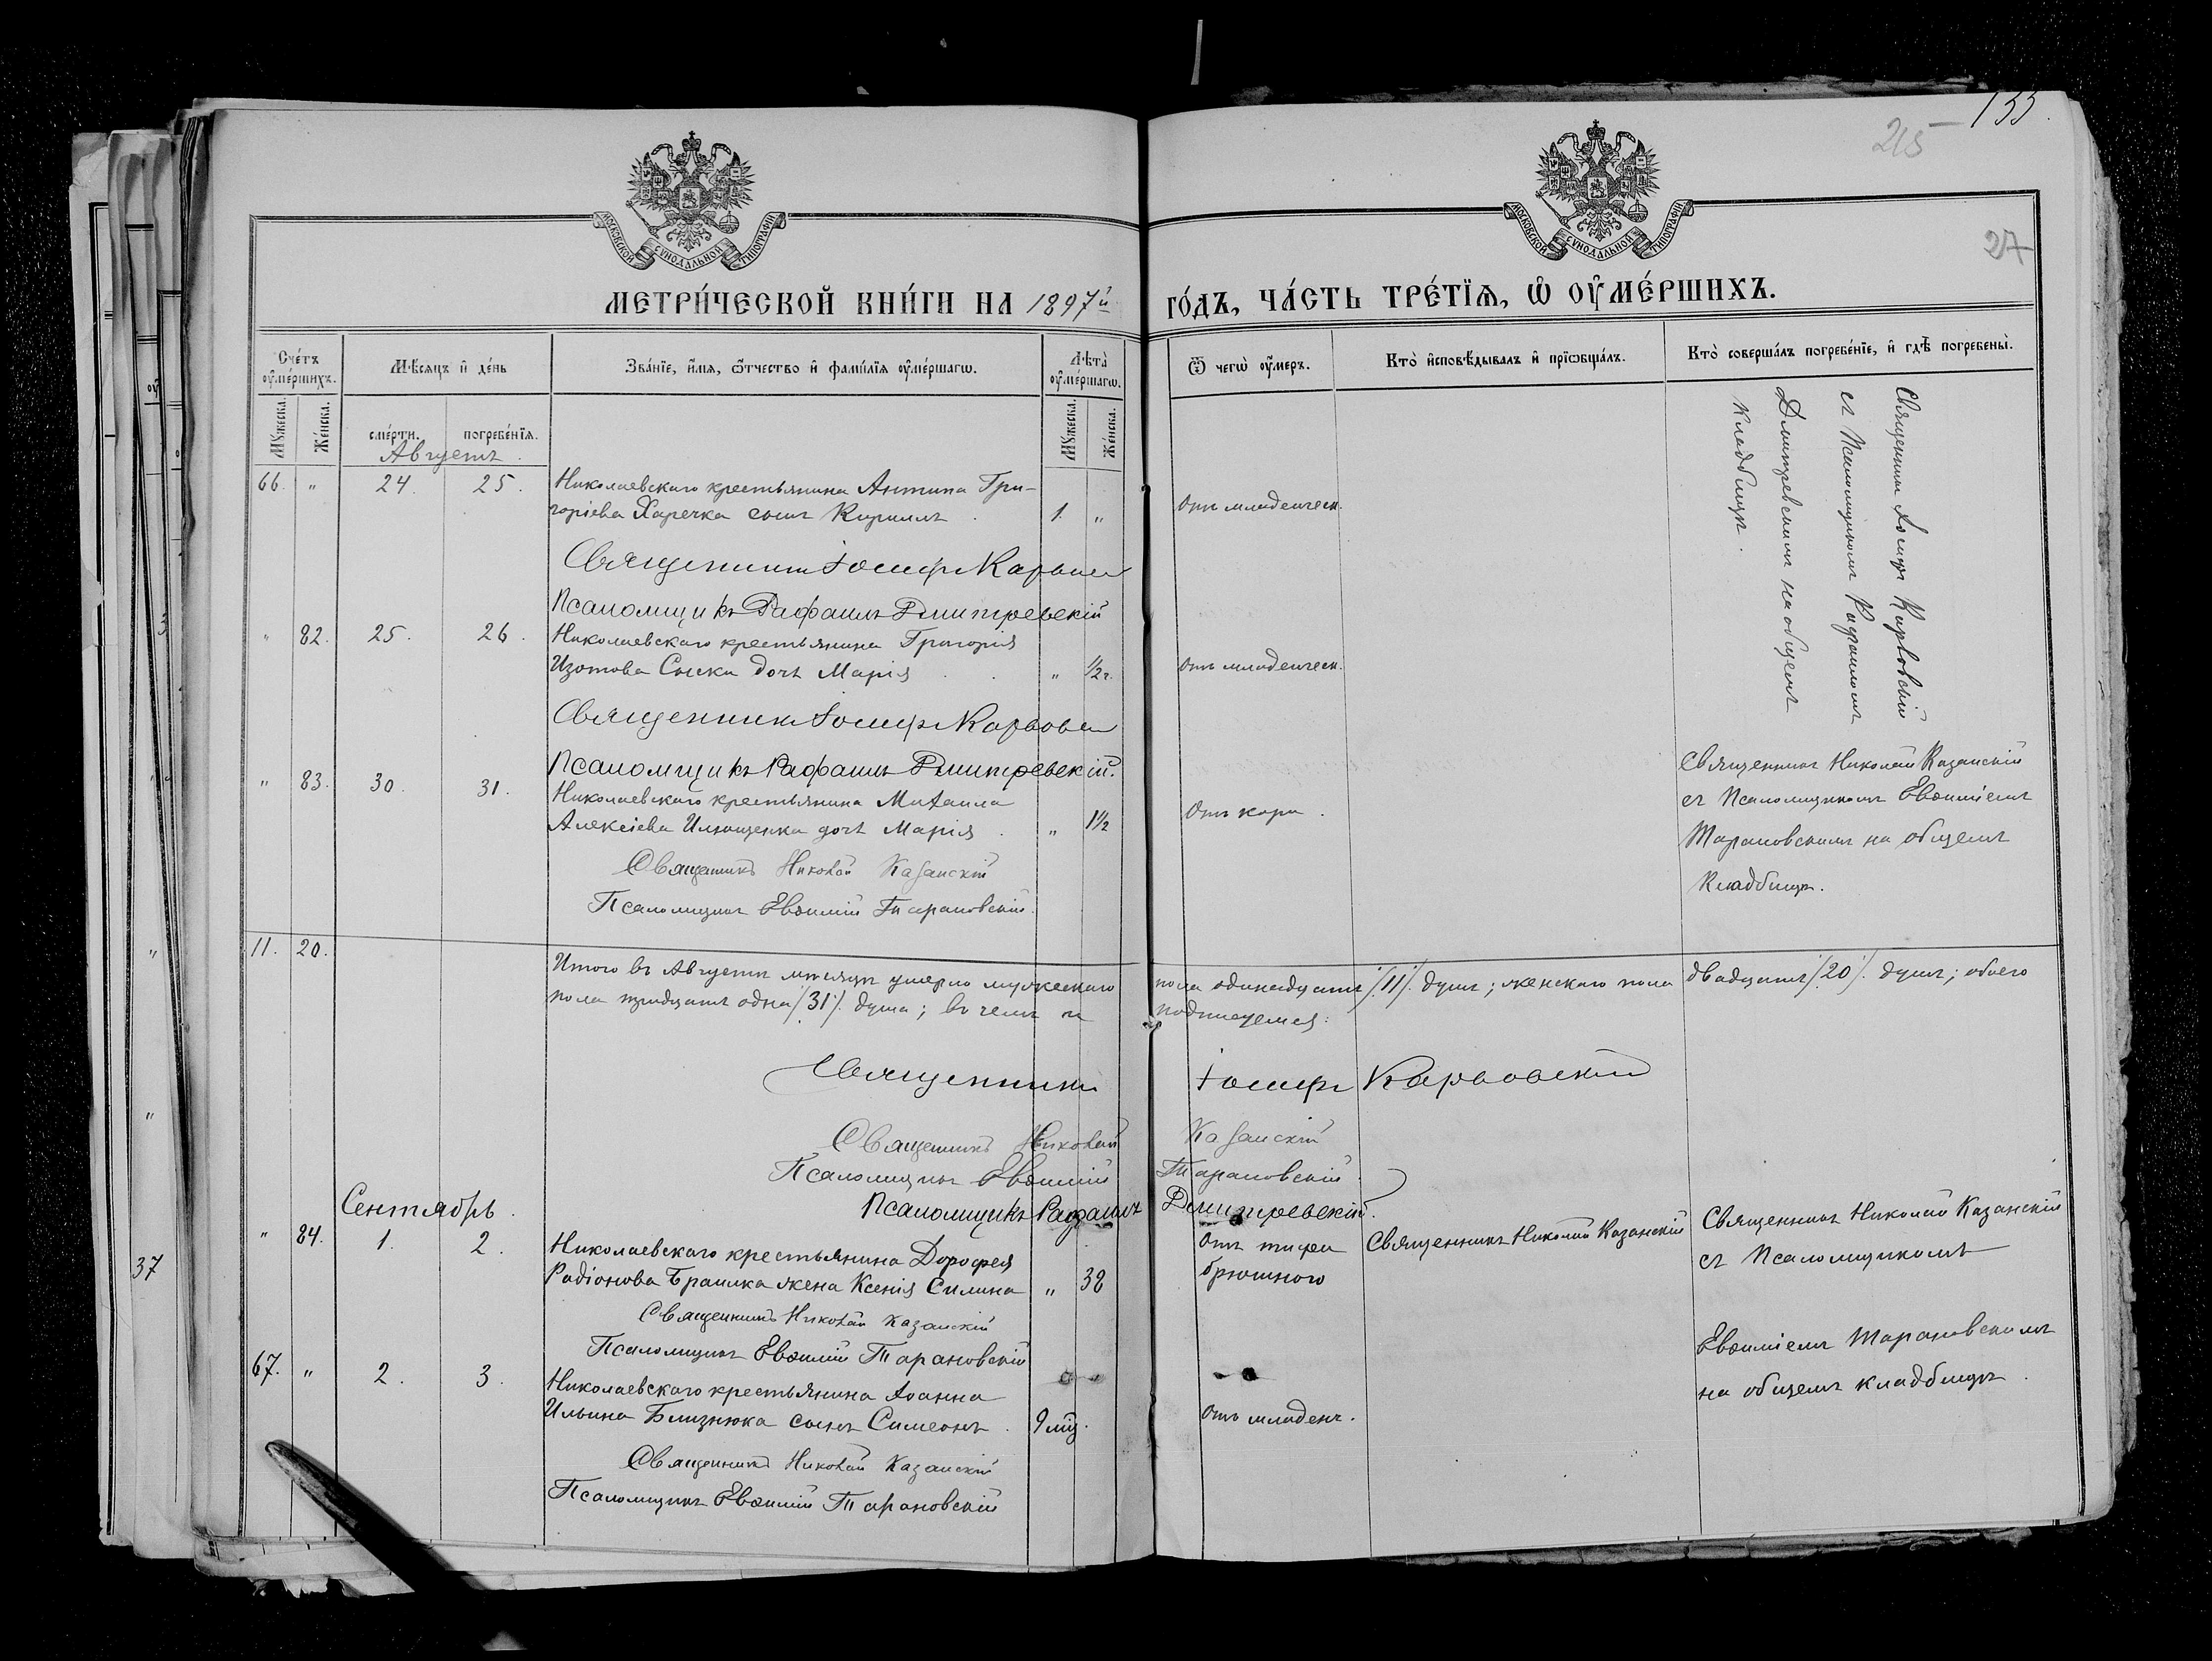 133.
215
27
МОСКОВСКОЙ СѴНОДАЛЬНОЙ ТИПОГРАФІИ
МОСКОВСКОЙ СѴНОДАЛЬНОЙ ТИПОГРАФІИ
МЕТРИ́ЧЕСКОЙ КНИ́ГИ НА 1897й
ГО́ДЪ, ЧА́СТЬ ТРЕ́ТІѦ, Ѽ ОУ҆МЕ́РШИХЪ.
Сче́тъ оу҆ме́ршихъ.
Мѣ́сяцъ и҆ де́нь
Зва́нїе, и҆́мѧ, ѻ҆́тчество и҆ фами́лїѧ оу҆ме́ршагѡ.
Лѣ́та оу҆ме́ршагѡ.
Ѿ чегѡ̀ оу҆́меръ.
Кто̀ и҆сповѣ́дывалъ и҆ прїѡбща́лъ.
Кто̀ соверша́лъ погребе́нїе, и҆ гдѣ̀ погребены̀.
Мꙋ́жеска.
Же́нска.
сме́рти.
погребе́нїѧ.
Мꙋ́жеска.
Же́нска.
Августъ.
66. " 24. 25. Николаевскаго крестьянина Антипа Гри-
горіева Харечка сынъ Кириллъ. 1. " Отъ младенческ.
Священникъ Іосифъ Карвовскій
съ Псаломщикомъ Рафаиломъ
Дмитревскимъ на общемъ
кладбищѣ.
Священникъ Іосифъ Карвовск
Псаломщикъ Рафаилъ Дмитревскій
" 82. 25. 26. Николаевскаго крестьянина Григорія
Изотова Сыска дочь Марія " ½ г. Отъ младенческ.
Священникъ Іосифъ Карвовск
Псаломщикъ Рафаилъ Дмитревскій.
" 83. 30. 31. Николаевскаго крестьянина Михаила
Алексіева Илющенка дочь Марія " 1½ Отъ кори.
Священникъ Николай Казанскій
съ Псаломщикомъ Евѳиміемъ
Тарановскимъ на общемъ
кладбищѣ.
Священникъ Николай Казанскій
Псаломщикъ Евѳимій Тарановскій.
11. 20.
Итого въ Августѣ мѣсяцѣ умерло мужескаго пола одинадцать /11/. душъ; женскаго пола двадцать /20/. душъ; обоего
пола тридцать одна /31/. душа; въ чемъ и подписуемся:
Священникъ Іосифъ Карвовскій
Священникъ Николай Казанскій
Псаломщикъ Евѳимій Тарановскій
Псаломщикъ Рафаилъ Дмитревскій.
Сентябрь.
" 84. 1. 2. Николаевскаго крестьянина Дорофея
Радіонова Браилка жена Ксенія Силина " 38 Отъ тифа
брюшного
Священникъ Николай Казанскій
Священникъ Николай Казанскій
съ Псаломщикомъ
Евѳиміемъ Тарановскимъ
на общемъ кладбищѣ.
Священникъ Николай Казанскій
Псаломщикъ Евѳимій Тарановскій
67. " 2. 3. Николаевскаго крестьянина Іоанна
Ильина Близнюка сынъ Симеонъ. 9 мц. Отъ младенч.
Священникъ Николай Казанскій
Псаломщикъ Евѳимій Тарановскій
37